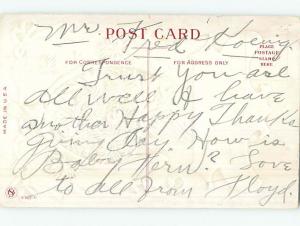 POST CARD
Mr. Fred Koenig
PLACE
POSTAGE
STAMP
HERE
FOR CORRESPONDENCE
FOR ADDRESS ONLY
Trust you are
all well & have
another Happy Thanks
giving Day. How is
Baby Kern? Love
to all from Floyd.
MADE IN U.S.A.